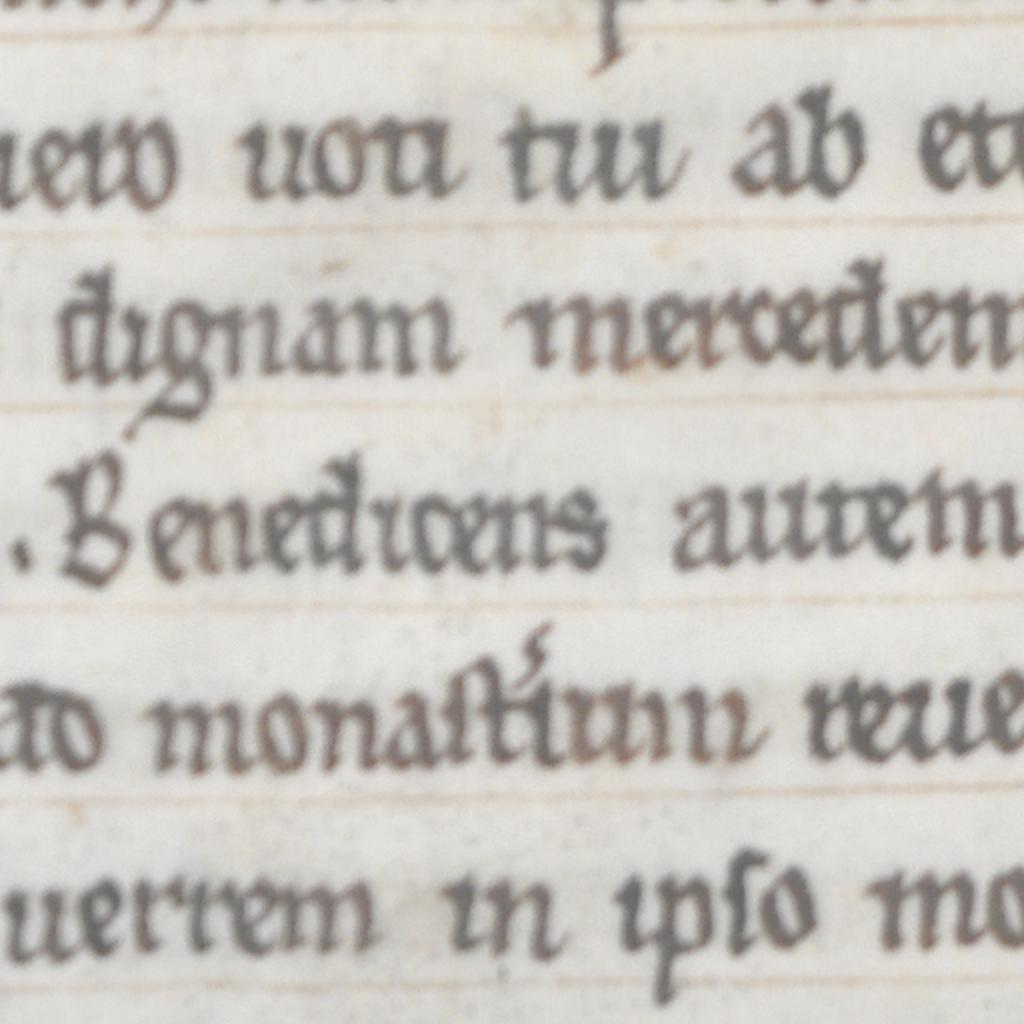 uero uoti tui ab et
dignam mercedem
. Benedicens autem
ad monast'ium reue
uertem in ipso mo